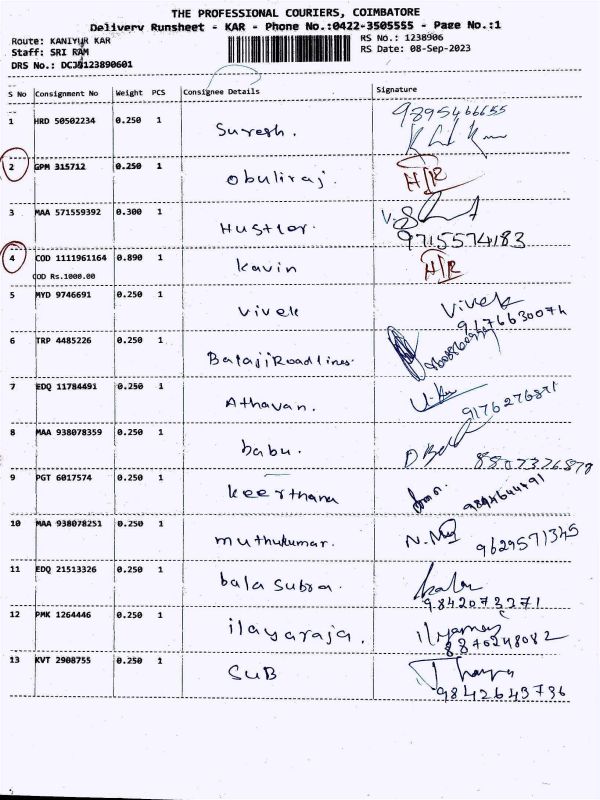 THE PROFESSIONAL COURIERS, COIMBATORE
Delivery Runsheet - KAR - Phone No.:0422-3505555 - Page No.:1
Route: KANIYUR KAR
RS No.: 1238906
Staff: SRI RAM
RS Date: 08-Sep-2023
DRS No.: DCJB123890601
S No Consignment No Weight PCS Consignee Details Signature
1 HRD 50502234 0.250 1 Suresh. 9895466655
2 GPM 315712 0.250 1 Obuliraj. H/R
3 MAA 571559392 0.300 1 Hustler. 9715574183
4 COD 1111961164 0.890 1 Kavin H/R
COD Rs.1000.00
5 MYD 9746691 0.250 1 Vivek Vivek
6 TRP 4485226 0.250 1 Balaji Roadlines.
7 EDQ 11784491 0.250 1 Athavan. 9176276871
8 MAA 938078359 0.250 1 babu.
9 PGT 6017574 0.250 1 Keerthana 9894644491
10 MAA 938078251 0.250 1 muthukumar. 9629571345
11 EDQ 21513326 0.250 1 bala Subra. 9842073271
12 PMK 1264446 0.250 1 ilayaraja. 8870248082
13 KVT 2908755 0.250 1 SUB 9842643736